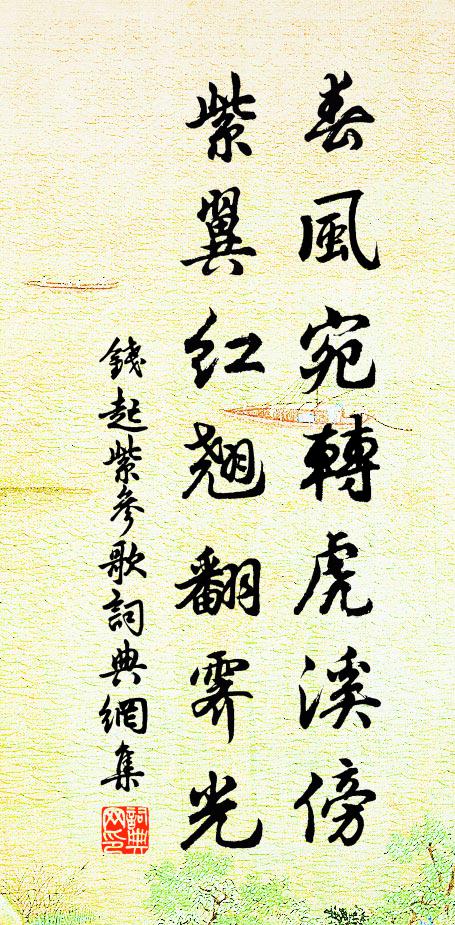 春風宛轉虎溪傍
紫翼红翹翻霽光
錢起紫參歌詞典網集
詞典網印